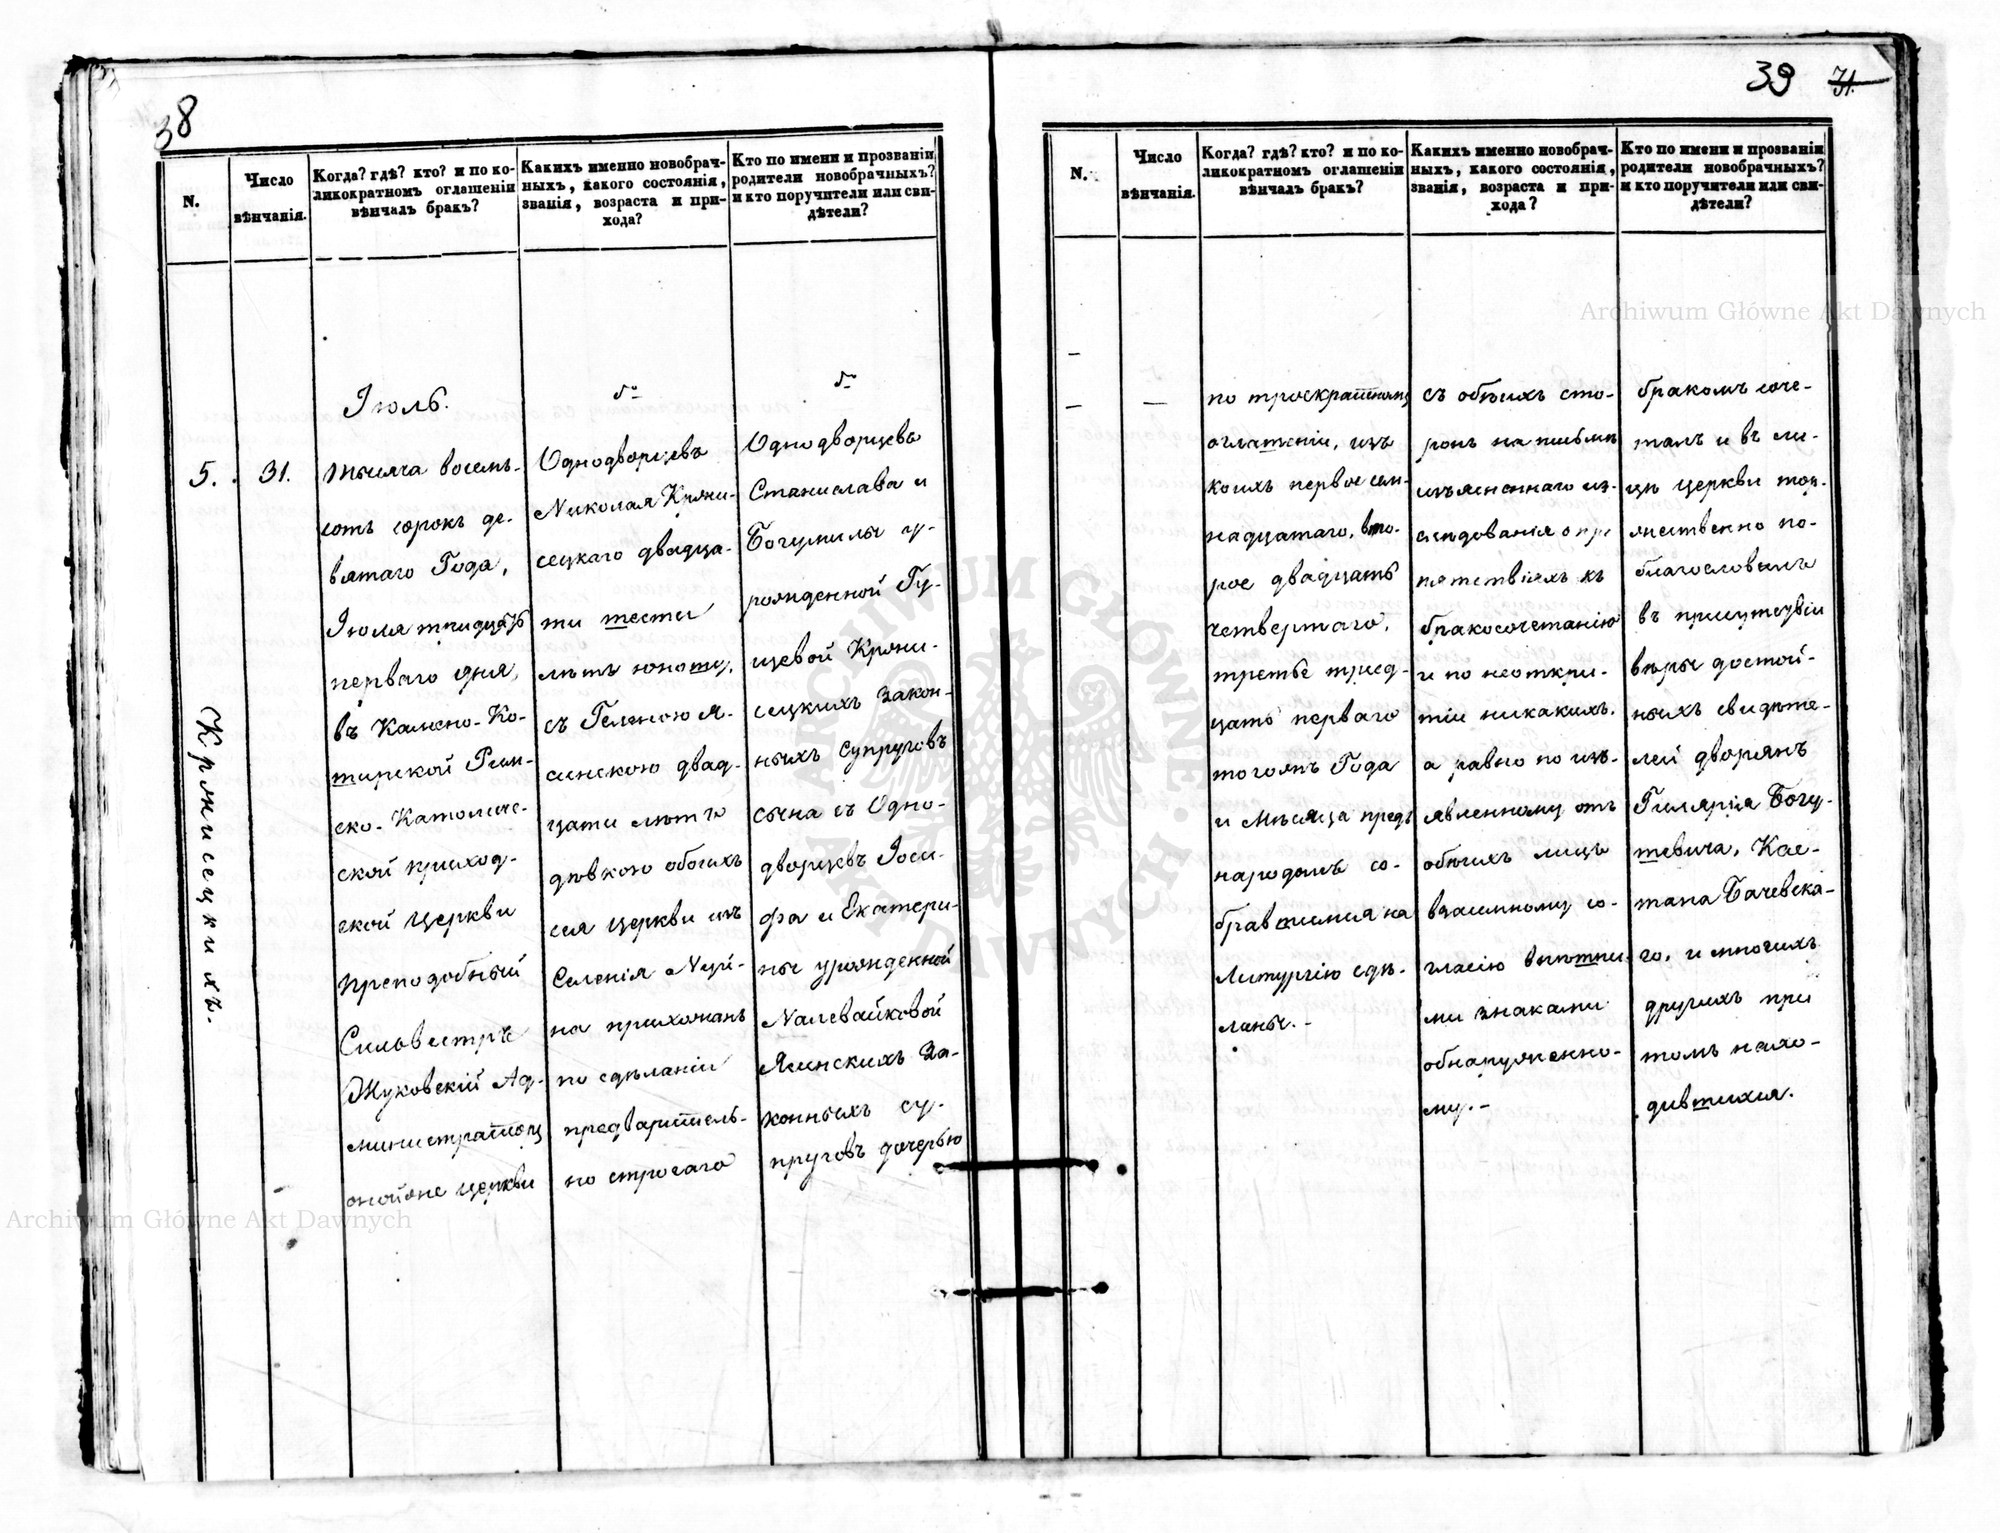 38
N.
Число
вѣнчанія.
Когда? гдѣ? кто? и по ко-
ликократномъ оглашеніи
вѣнчалъ бракъ?
Какихъ именно новобрач-
ныхъ, какого состоянія,
званія, возраста и при-
хода?
Кто по имени и прозванію
родители новобрачныхъ?
и кто поручители или сви-
дѣтели?
5.
31.
Крживецкихъ.
Іюль.
тысяча восемь-
сотъ сорокъ де-
вятаго Года,
Іюля тридцать
перваго дня,
въ Камено-Ко-
ширской Рим-
ско-Католиче-
ской приход-
ской Церкви
Преподобный
Сильвестръ
Жуковскій Ад-
министраторъ
онойже Церкви
5о
Однодворцевъ
Николая
сецкаго двадца-
ти шести
лѣтъ юношу,
съ Геленою Я-
синскою двад-
цати лѣтъ
дѣвкою обоихъ
сея Церкви изъ
Селенія
на прихожанъ
по сдѣланіи
предваритель-
но строгаго
5о
Однодворцевъ
Станислава и
Богумилы у-
рожденной Гу-
щевой
сецкихъ закон-
ныхъ Супруговъ
сына съ Одно-
дворцевъ Іоси-
фа и Екатери-
ны урожденной
Наливайковой
Ясинскихъ За-
конныхъ су-
пруговъ дочерью
39 31.
N.
Число
вѣнчанія.
Когда? гдѣ? кто? и по ко-
ликократномъ оглашеніи
вѣнчалъ бракъ?
Какихъ именно новобрач-
ныхъ, какого состоянія,
званія, возраста и при-
хода?
Кто по имени и прозваніи
родители новобрачныхъ?
и кто поручители или сви-
дѣтели?
по троекратномъ
оглашеніи, изъ
коихъ первое сем-
надцатаго, вто-
рое двадцать
четвертаго,
третье трид-
цать перваго
тогожъ Года
и Мѣсяца предъ
народомъ со-
бравшимся на
Литургію сдѣ-
ланы.-
съ обѣихъ сто-
ронъ на письмѣ
изъясненнаго из-
слѣдованія о пре
пятствіяхъ къ
бракосочетанію
и по неоткры-
тіи никакихъ,
а равно по изъ-
явленному отъ
обоихъ лицъ
взаимному со-
гласію внѣшни-
ми знаками
обнаруженно-
му.-
бракомъ соче-
талъ и въ ли-
цѣ Церкви тор-
жественно по-
благословилъ
въ присутствіи
вѣры достой-
ныхъ свидѣте-
лей дворянъ
Гилярія Богу-
шевича, Кае-
тана Бачевска-
го, и многихъ
другихъ при
томъ нахо-
дившихся.
Archiwum Główne Akt Dawnych
Archiwum Główne Akt Dawnych
ARCHIWUM GŁÓWNE AKT DAWNYCH